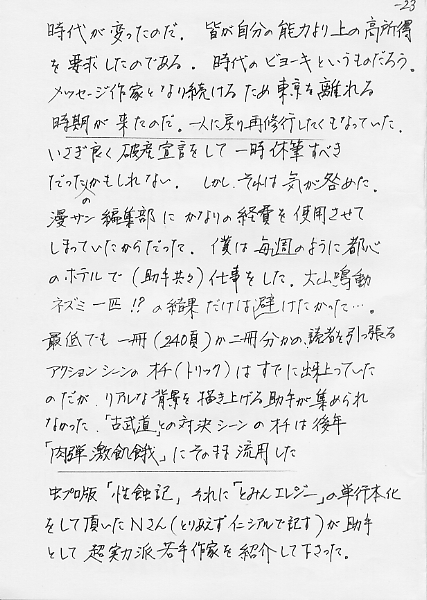 -23
時代が変ったのだ。皆が自分の能力より上の高所得
を要求したのである。時代のビョーキというものだろう。
メッセージ作家となり続けるため東京を離れる
時期が来たのだ。一人に戻り再修行したくもなっていた。
いさぎ良く破産宣言をして一時休筆すべき
だったのかもしれない。しかし、それは気が咎めた。
漫サン編集部にかなりの経費を使用させて
しまっていたからだった。僕は毎週のように都心
のホテルで(助手共々)仕事をした。大山鳴動
ネズミ一匹!?の結果だけは避けたかった…。
最低でも一冊(240頁)か二冊分かの、読者を引っ張る
アクションシーンのオチ(トリック)はすでに出来上っていた
のだが、リアルな背景を描き上げる助手が集められ
なかった。「古武道」との対決シーンのオチは後年
「肉弾激飢餓」にそのまま流用した
虫プロ版「性蝕記」それに「とみんエレジー」の単行本化
をして頂いたNさん(とりあえずイニシアルで記す)が助手
として超実力派若手作家を紹介して下さった。